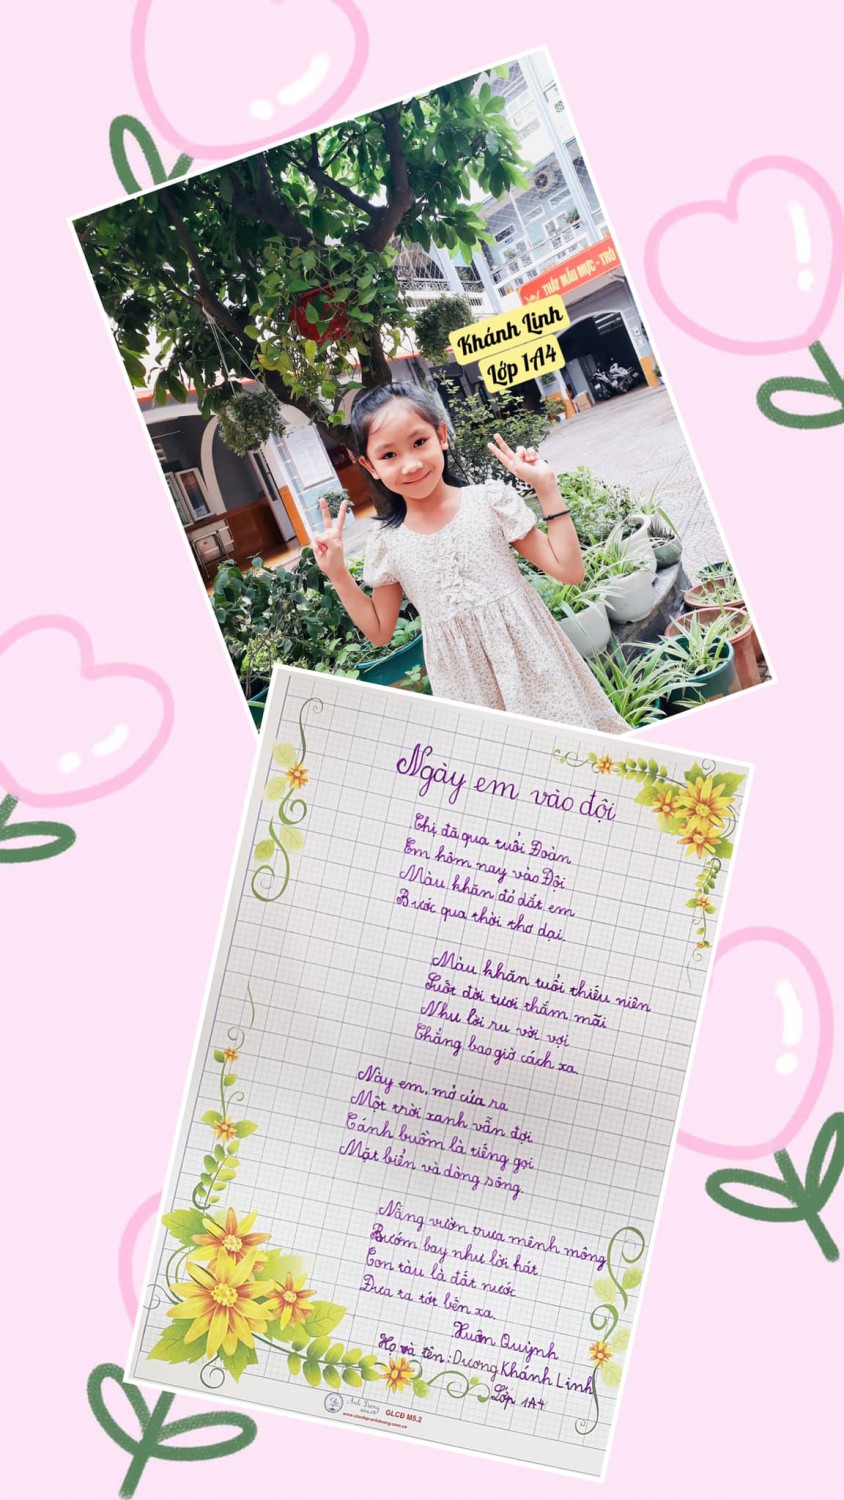 THẦY MẪU MỰC - TRÒ
Khánh Linh
Lớp 1A4
Ngày em vào đội
Chị đã qua tuổi Đoàn
Em hôm nay vào Đội
Màu khăn đỏ dắt em
Bước qua thời thơ dại.
Màu khăn tuổi thiếu niên
Suốt đời tươi thắm mãi
Như lời ru vời vợi
Chẳng bao giờ cách xa.
Này em, mở cửa ra
Một trời xanh vẫn đợi
Cánh buồm là tiếng gọi
Mặt biển và dòng sông.
Nắng vườn trưa mênh mông
Bướm bay như lời hát
Con tàu là đất nước
Đưa ta tới bến xa.
Xuân Quỳnh
Họ và tên: Dương Khánh Linh
Lớp 1A4
GLCĐ M5.2